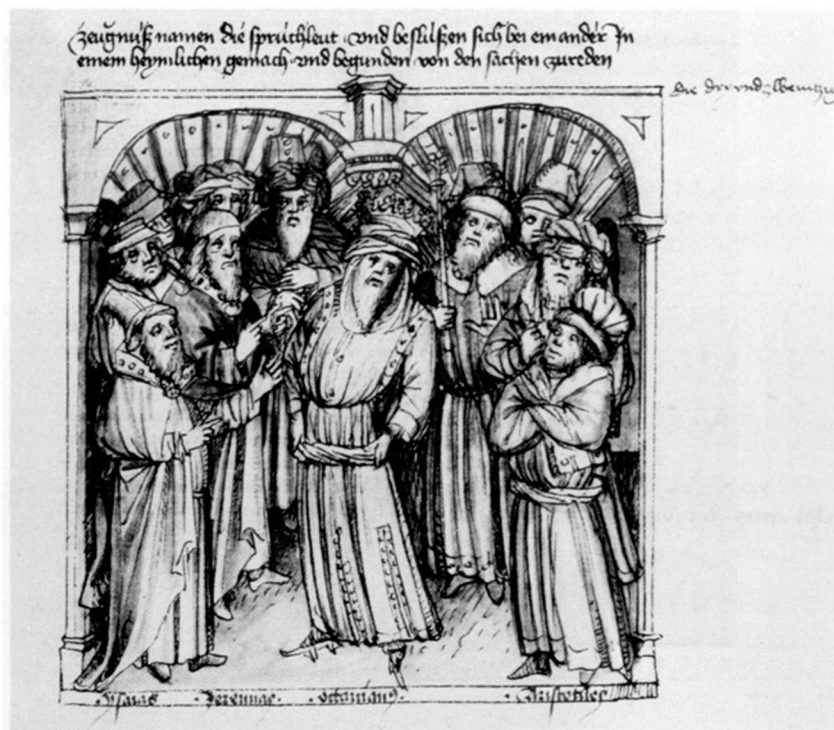 zeugnuß namen die spruchleut vnd besluſßen sich bei ein ander In
einem heymlichen gemach vnd begunden von den sachen zureden
die drey vnd
ysaias · Jeremias · octavian9 · Aristotiles